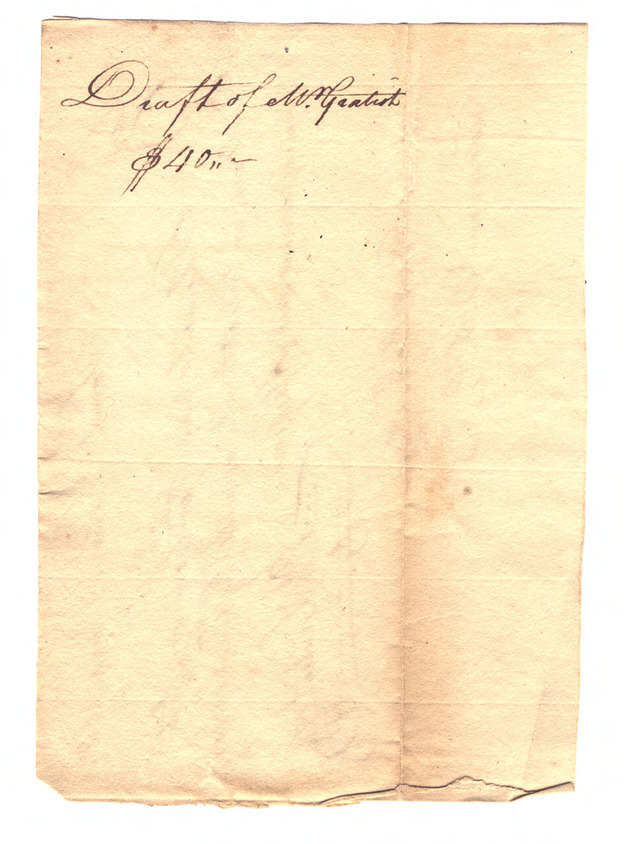 Draft of Mr. Gratiot
$40"~